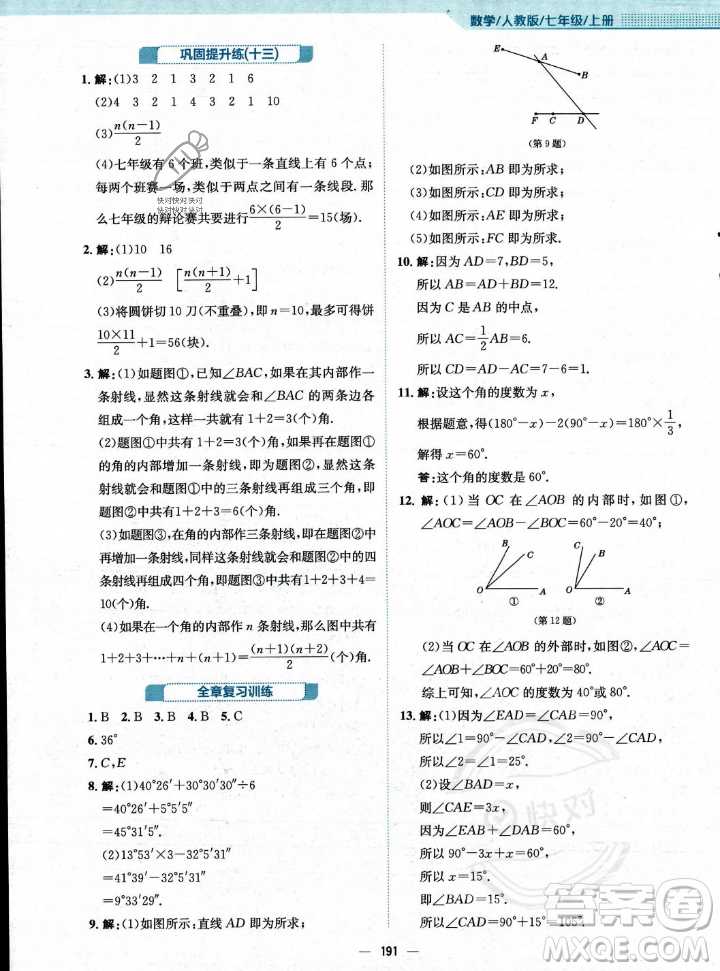 数学/人教版/七年级/上册
巩固提升练(十三)
1. 解:(1)3 2 1 3 2 1 6
(2)4 3 2 1 4 3 2 1 10
(3)n(n−1)/2
(4)七年级有 6 个班,类似于一条直线上有 6 个点;
每两个班赛一场,类似于两点之间有一条线段. 那
快对快对快对
么七年级的辩论赛共要进行6×(6−1)/2=15(场).
快对快对
2. 解:(1)10 16
(2)n(n−1)/2 [n(n−1)/2+1]
(3)将圆饼切 10 刀(不重叠),即 n=10,最多可得饼
10×11/2+1=56(块).
3. 解:(1)如题图①,已知∠BAC,如果在其内部作一
条射线,显然这条射线就会和∠BAC 的两条边各
组成一个角,这样一共就有 1+2=3(个)角.
(2)题图①中共有 1+2=3(个)角,如果再在题图①
的角的内部增加一条射线,即变为题图②所示图形,
显然这条射线就会和图中的三条射线再组成三个
角,即题图②中共有 1+2+3=6(个)角.
(3)如题图③,在角的内部作三条射线,即在题图②
中再增加一条射线,同样这条射线就会和图中的四
条射线再组成四个角,即题图③中共有 1+2+3+4
=10(个)角.
(4)如果在一个角的内部作 n 条射线,则图中共有
1+2+3+⋯+n+(n+1)=(n+1)(n+2)/2(个)角.
全章复习训练
1. B 2. B 3. B 4. B 5. C
6. 36°
7. C,E
8. 解:(1)40°26′+30°30′30″÷6
=40°26′+5°5′5″
=45°31′5″.
(2)13°53′×3−32°5′31″
=41°39′−32°5′31″
=9°33′29″.
9. 解:(1)如图所示:直线 AD 即为所求;
E A B
F C D
(第 9 题)
(2)如图所示:AB 即为所求;
(3)如图所示:CD 即为所求;
(4)如图所示:AE 即为所求;
(5)如图所示:FC 即为所求.
10. 解:因为 AD=7,BD=5,
所以 AB=AD+BD=12.
因为 C 是 AB 的中点,
所以 AC=1/2AB=6.
所以 CD=AD−AC=7−6=1.
11. 解:设这个角的度数为 x,
根据题意,得(180°−x)−2(90°−x)=180°×1/3,
解得 x=60°.
答:这个角的度数是 60°.
12. 解:(1)当 OC 在∠AOB 的内部时,如图①,
∠AOC=∠AOB−∠BOC=60°−20°=40°;
B C O A ①
C B O A ②
(第 12 题)
(2)当 OC 在∠AOB 的外部时,如图②,∠AOC=
∠AOB+∠BOC=60°+20°=80°.
综上可知,∠AOC 的度数为 40°或 80°.
13. 解:(1)因为∠EAD=∠CAD=90°,
所以∠1=90°−∠2=90°−∠CAD=90°.
(2)设∠BAD=x,
则∠CAE=3x,
因为∠EAB+∠BAD=90°,
所以 90°−3x+x=60°.
所以 x=15°.
所以∠CAD=90°+15°=105°.
快对
答案圈
191